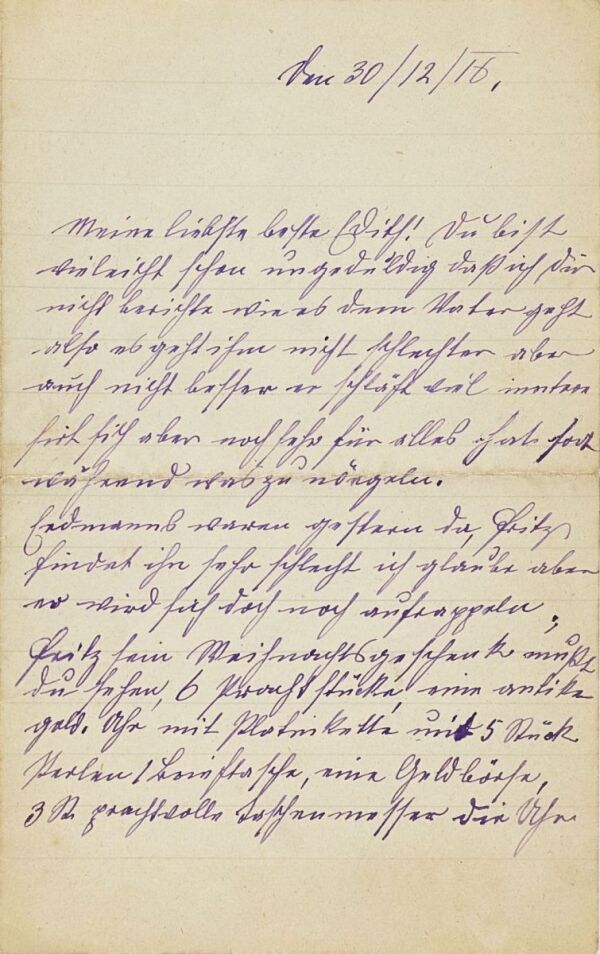 Den 30/12/18.
Meine liebste beste Edith! Du bist
vieleicht schon ungeduldig daß ich Dir
nicht berichte wie es dem Vater geht
also es geht ihm nicht schlechter aber
auch nicht besser er schläft viel inntere
sirt sich aber noch sehr für alles hat fort
während was zu nörgeln.
Erdmanns waren gestern da, Fritz
findet ihn sehr schlecht ich glaube aber
er wird sich doch noch aufrappeln.
Fritz sein Weihnachtsgeschenk mußt
du sehen, 6 Prachtstücke, eine antike
gold. Uhr mit Platinkette mit 5 Stück
Perlen 1 Brieftasche, eine Geldbörse,
3 St. prachtvolle Taschenmesser die Uhr